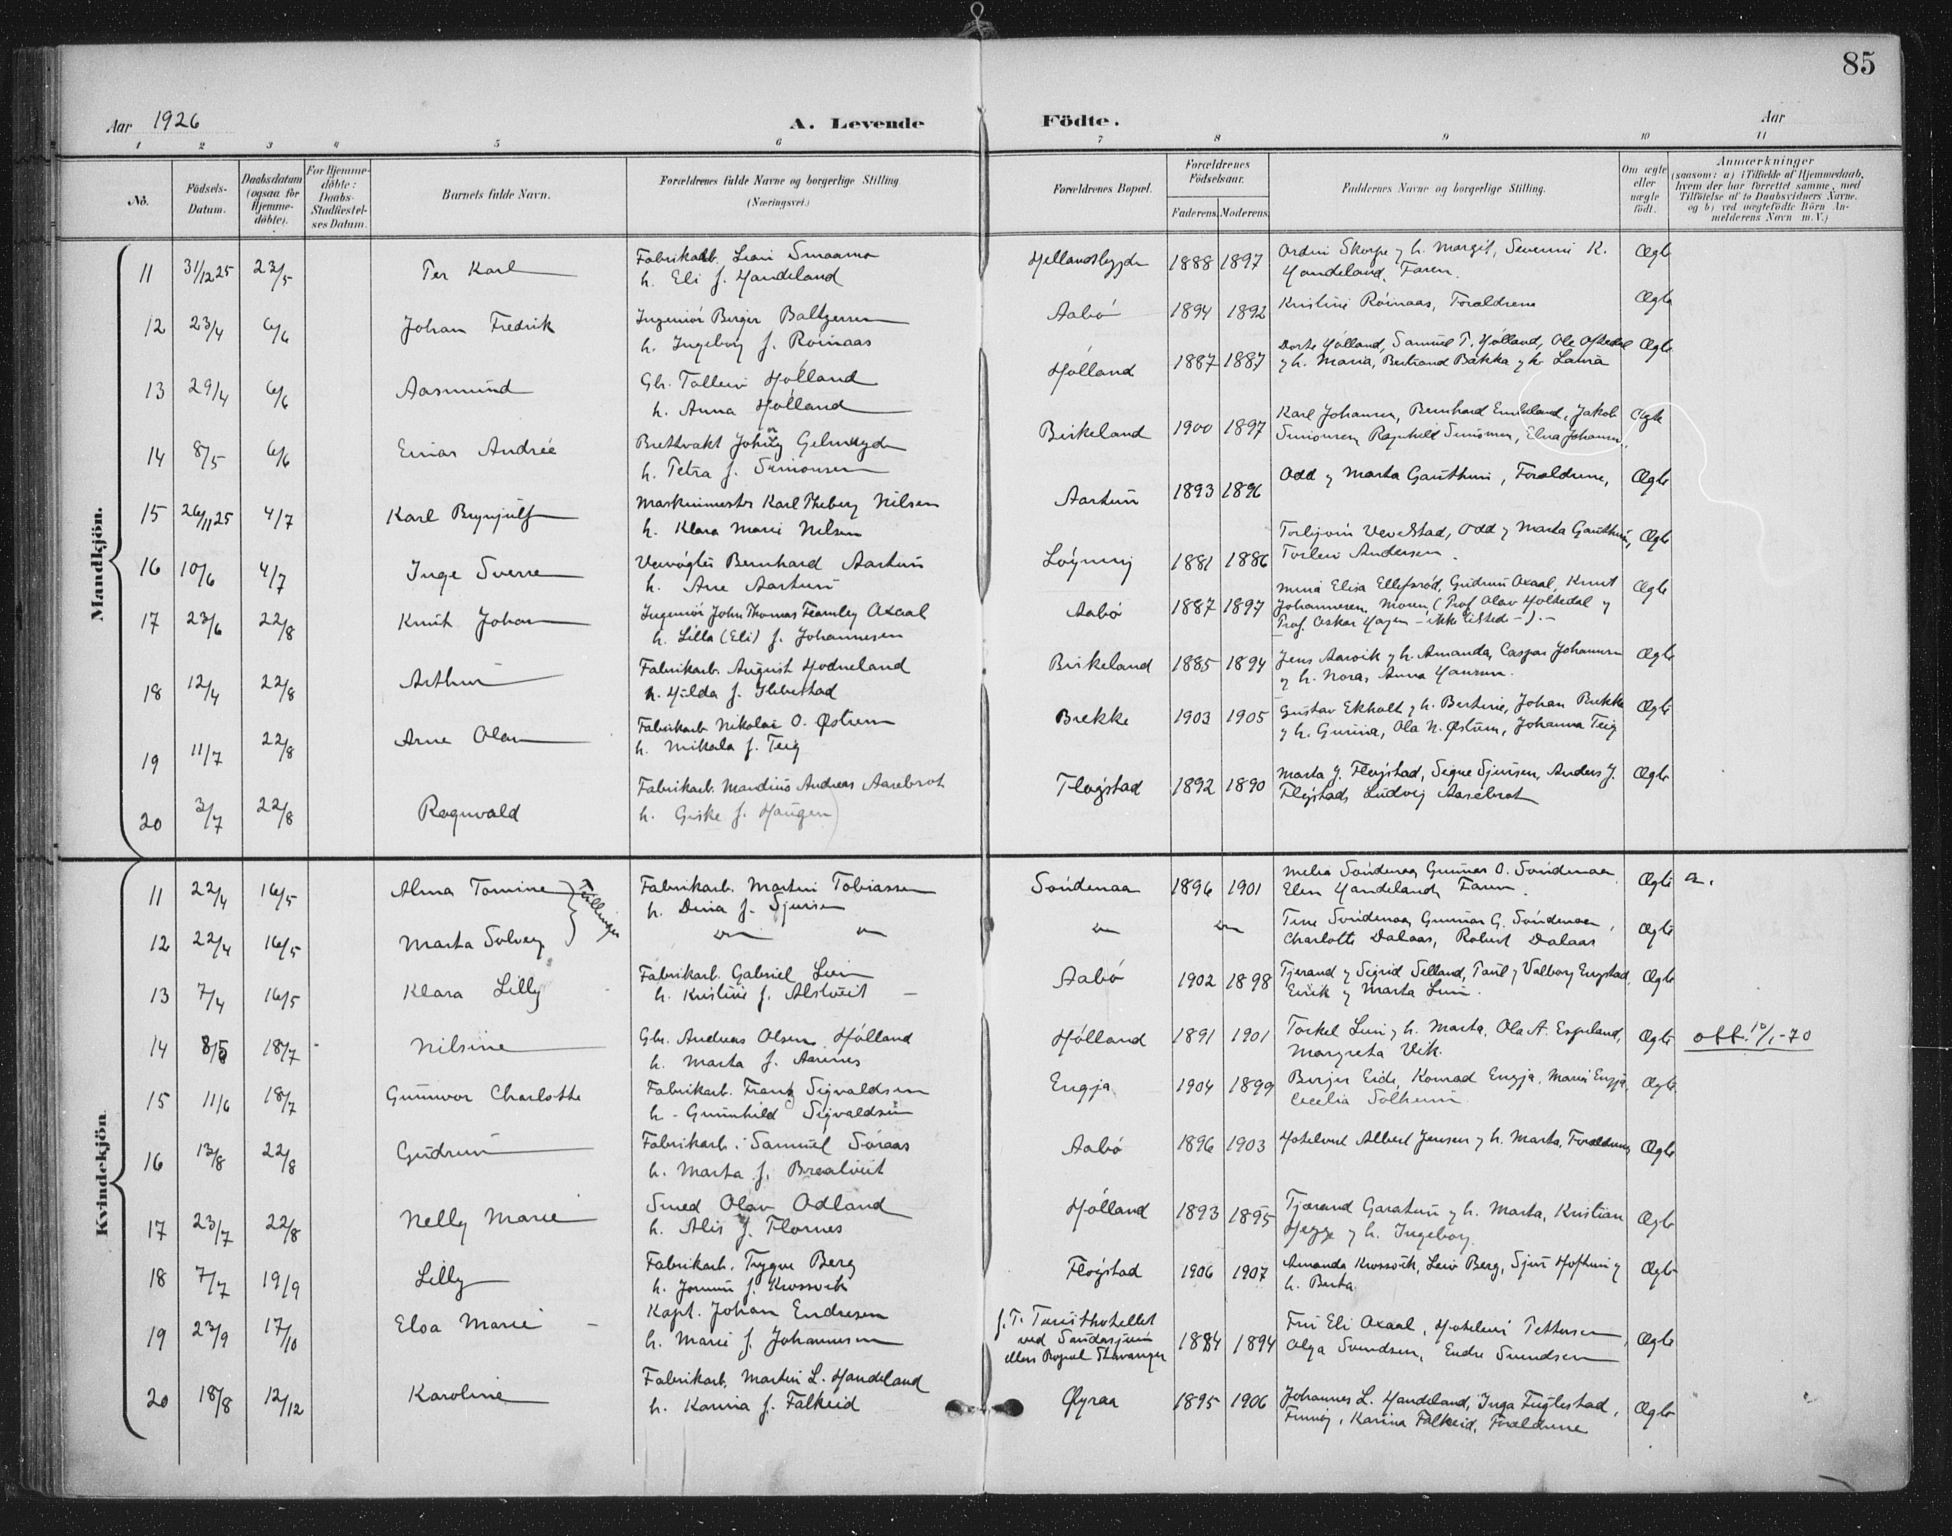 85
Aar 1926 A. Levende Födte. Aar
1 2 3 4 5 6 7 8 9 10 11
No. Födsels-Datum. Daabsdatum (ogsaa for Hjemme-döbte). For Hjemme-döbte: Daabs-Stadfæstel-ses Datum. Barnets fulde Navn. Forældrenes fulde Navne og borgerlige Stilling (Næringsvei.) Forældrenes Bopæl. Forældrenes Födselsaar. Faderens. Moderens. Faddernes Navne og borgerlige Stilling. Om ægte eller uægte födt. Anmærkninger (saasom: a) i Tilfælde af Hjemmedaab, hvem der har forrettet samme, med Tilföielse af to Daabsvidners Navne, og b) ved uægtefödte Börn An-melderens Navn m. V.)
Mandkjön.
11 31/12 25 23/5 Per Karl Fabrikarb. Smaamo
h. Eli f. Handeland Hellandsbygden 1888 1897 h. Margit, K. Handeland, Faren. Ægte
12 23/4 6/6 Johan Fredrik Ingeniör Berger Baltzersen
h. Ingeborg f. Röinaas Aabö 1894 1892 Kristine Röinaas, Forældrene Ægte
13 29/4 6/6 Aasmund Gbr. Hölland
h. Anna Hölland Hölland 1887 1887 Dorte Hölland, Samuel T. Hölland, Ole Oftedal
y h. Maria, Bertrand Bakka y h. Laura Ægte
14 8/5 6/6 Einar Andrée Brettvakt
h. Petra f. Simonsen Birkeland 1900 1897 Karl Johansen, Bernhard Jakob
Simonsen, Ragnhild Simonsen, Elna Johansen. Ægte
15 26/11 25 4/7 Karl Brynjulf Maskinmester Karl Nilsen
h. Klara Marie Nilsen Aartun 1893 1896 Odd y Marta Gauthun, Forældrene, Ægte
16 10/6 4/7 Inge Sverre Bernhard Aartun
h. Ane Aartun 1881 1886 Odd y Marta Gauthun,
Torleiv Andersen. Ægte
17 23/6 22/8 Knut Johan Ingeniör John Thomas Fearnley Oxaal
h. Lilla (Eli) f. Johannesen Aabö 1887 1897 Elisa Ellefsröd, Gudrun Oxaal, Knut
Johannesen, Moren, (Prof. Olav Holtedal y
Prof. Oskar Hagen – ikke tilsted –). – Ægte
18 12/4 22/8 Arthur Fabrikarb. August Hodneland
h. Hulda f. Ibbestad Birkeland 1885 1894 Jens Aarvik y h. Amanda, Caspar Johansen
y h. Nora, Anna Hansen. Ægte
19 11/7 22/8 Arne Olav Fabrikarb. Nikolai O. Östrem
h. Mikala f. Teig Brekke 1903 1905 Gustav Ekholt y h. Bertine, Johan Brekke
y h. Gurina, Ola N. Östrem, Johanna Teig Ægte
20 3/7 22/8 Ragnvald Fabrikarb. Mandius Andreas Aasebrot
h. Giske f. Haugen Flögstad 1892 1890 Marta J. Flögstad, Signe Sjursen, Anders J.
Flögstad, Ludvig Aasebrot Ægte
Kvindekjön.
11 22/4 16/5 Alma Tomine Tvillinger Fabrikarb. Martin Tobiassen
h. Dina f. Sjursen Söndenaa 1896 1901 Söndenaa, Gunnar O. Söndenaa
Elen Handeland, Faren. Ægte a.
12 22/4 16/5 Marta Solveig Söndenaa, Gunnar G. Söndenaa,
Charlotte Dalaas, Robert Dalaas Ægte
13 7/4 16/5 Klara Lilly Fabrikarb. Gabriel Lien
h. Kristine f. Alstveit – Aabö 1902 1898 Tjerand y Sigrid Selland, Paul y Valborg Engstad,
Eirik y Marta Lien. Ægte
14 8/5 18/7 Nilsine Gbr. Andreas Olsen Hölland
h. Marta f. Aarenes Hölland 1891 1901 Torkel Lien y h. Marta, Ola A. Espeland,
Margreta Vik. Ægte att. 10/1 -70
15 11/6 18/7 Gunnvor Charlotte Fabrikarb. Frantz Sigvaldsen
h. Gunnhild Sigvaldsen Engja 1904 1899 Berger Eide, Konrad Engja, Marie Engja,
Cecelia Solheim. Ægte
16 13/8 22/8 Gudrun Fabrikarb. Samuel Söraas
h. Marta f. Breatveit Aabö 1896 1903 Albert Jensen y h. Marta, Forældrene, Ægte
17 23/7 22/8 Nelly Marie Smed Olav Odland
h. Alis f. Flornes Hölland 1893 1895 Tjærand Garatun y h. Marta, Kristian
Hegge y h. Ingeborg. Ægte
18 7/7 19/9 Lilly Fabrikarb. Trygve Berg
h. Jorunn f. Krossvik Flögstad 1906 1907 Amanda Krossvik, Leiv Berg, Sjur y
h. Berta. Ægte
19 23/9 17/10 Eloa Marie – Kapt. Johan Endresen
h. Marie f. Johannesen f. T. Turisthotellet
ved
ellers Bopæl Stavanger 1884 1894 Fru Eli Oxaal, Pettersen,
Olga Svendsen, Endre Svendsen Ægte
20 18/8 12/12 Karoline Fabrikarb. Martin L. Handeland
h. Karina f. Falkeid Öyraa 1895 1906 Johannes L. Handeland, Inga Fuglestad,
Finnöy, Karina Falkeid, Forældrene Ægte